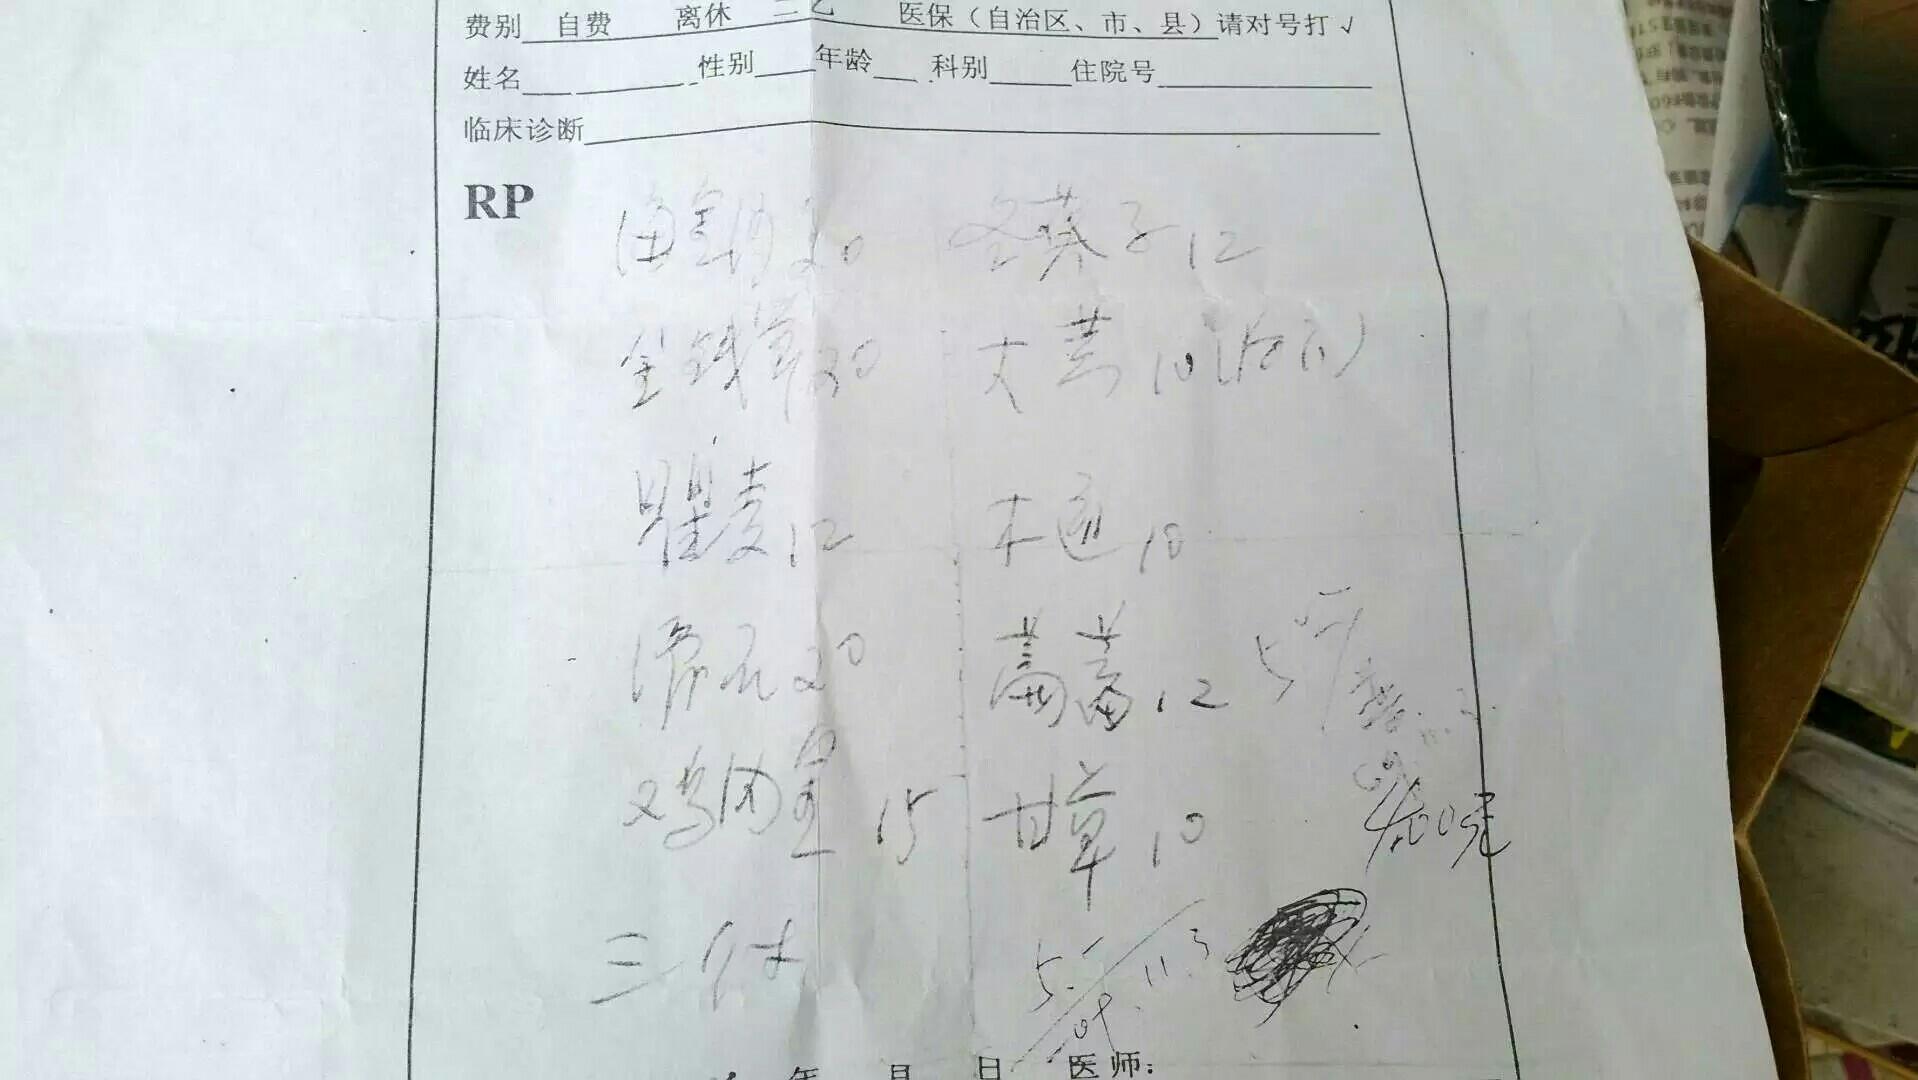 费别 自费 离休 二乙 医保（自治区、市、县）请对号打√
姓名 性别 年龄 科别 住院号
临床诊断
RP
海金沙30 冬葵子12
金钱草30 大黄10（后下）
瞿麦12 木通10
滑石30 萹蓄12
鸡内金15 甘草10
三付
年 月 日 医师：